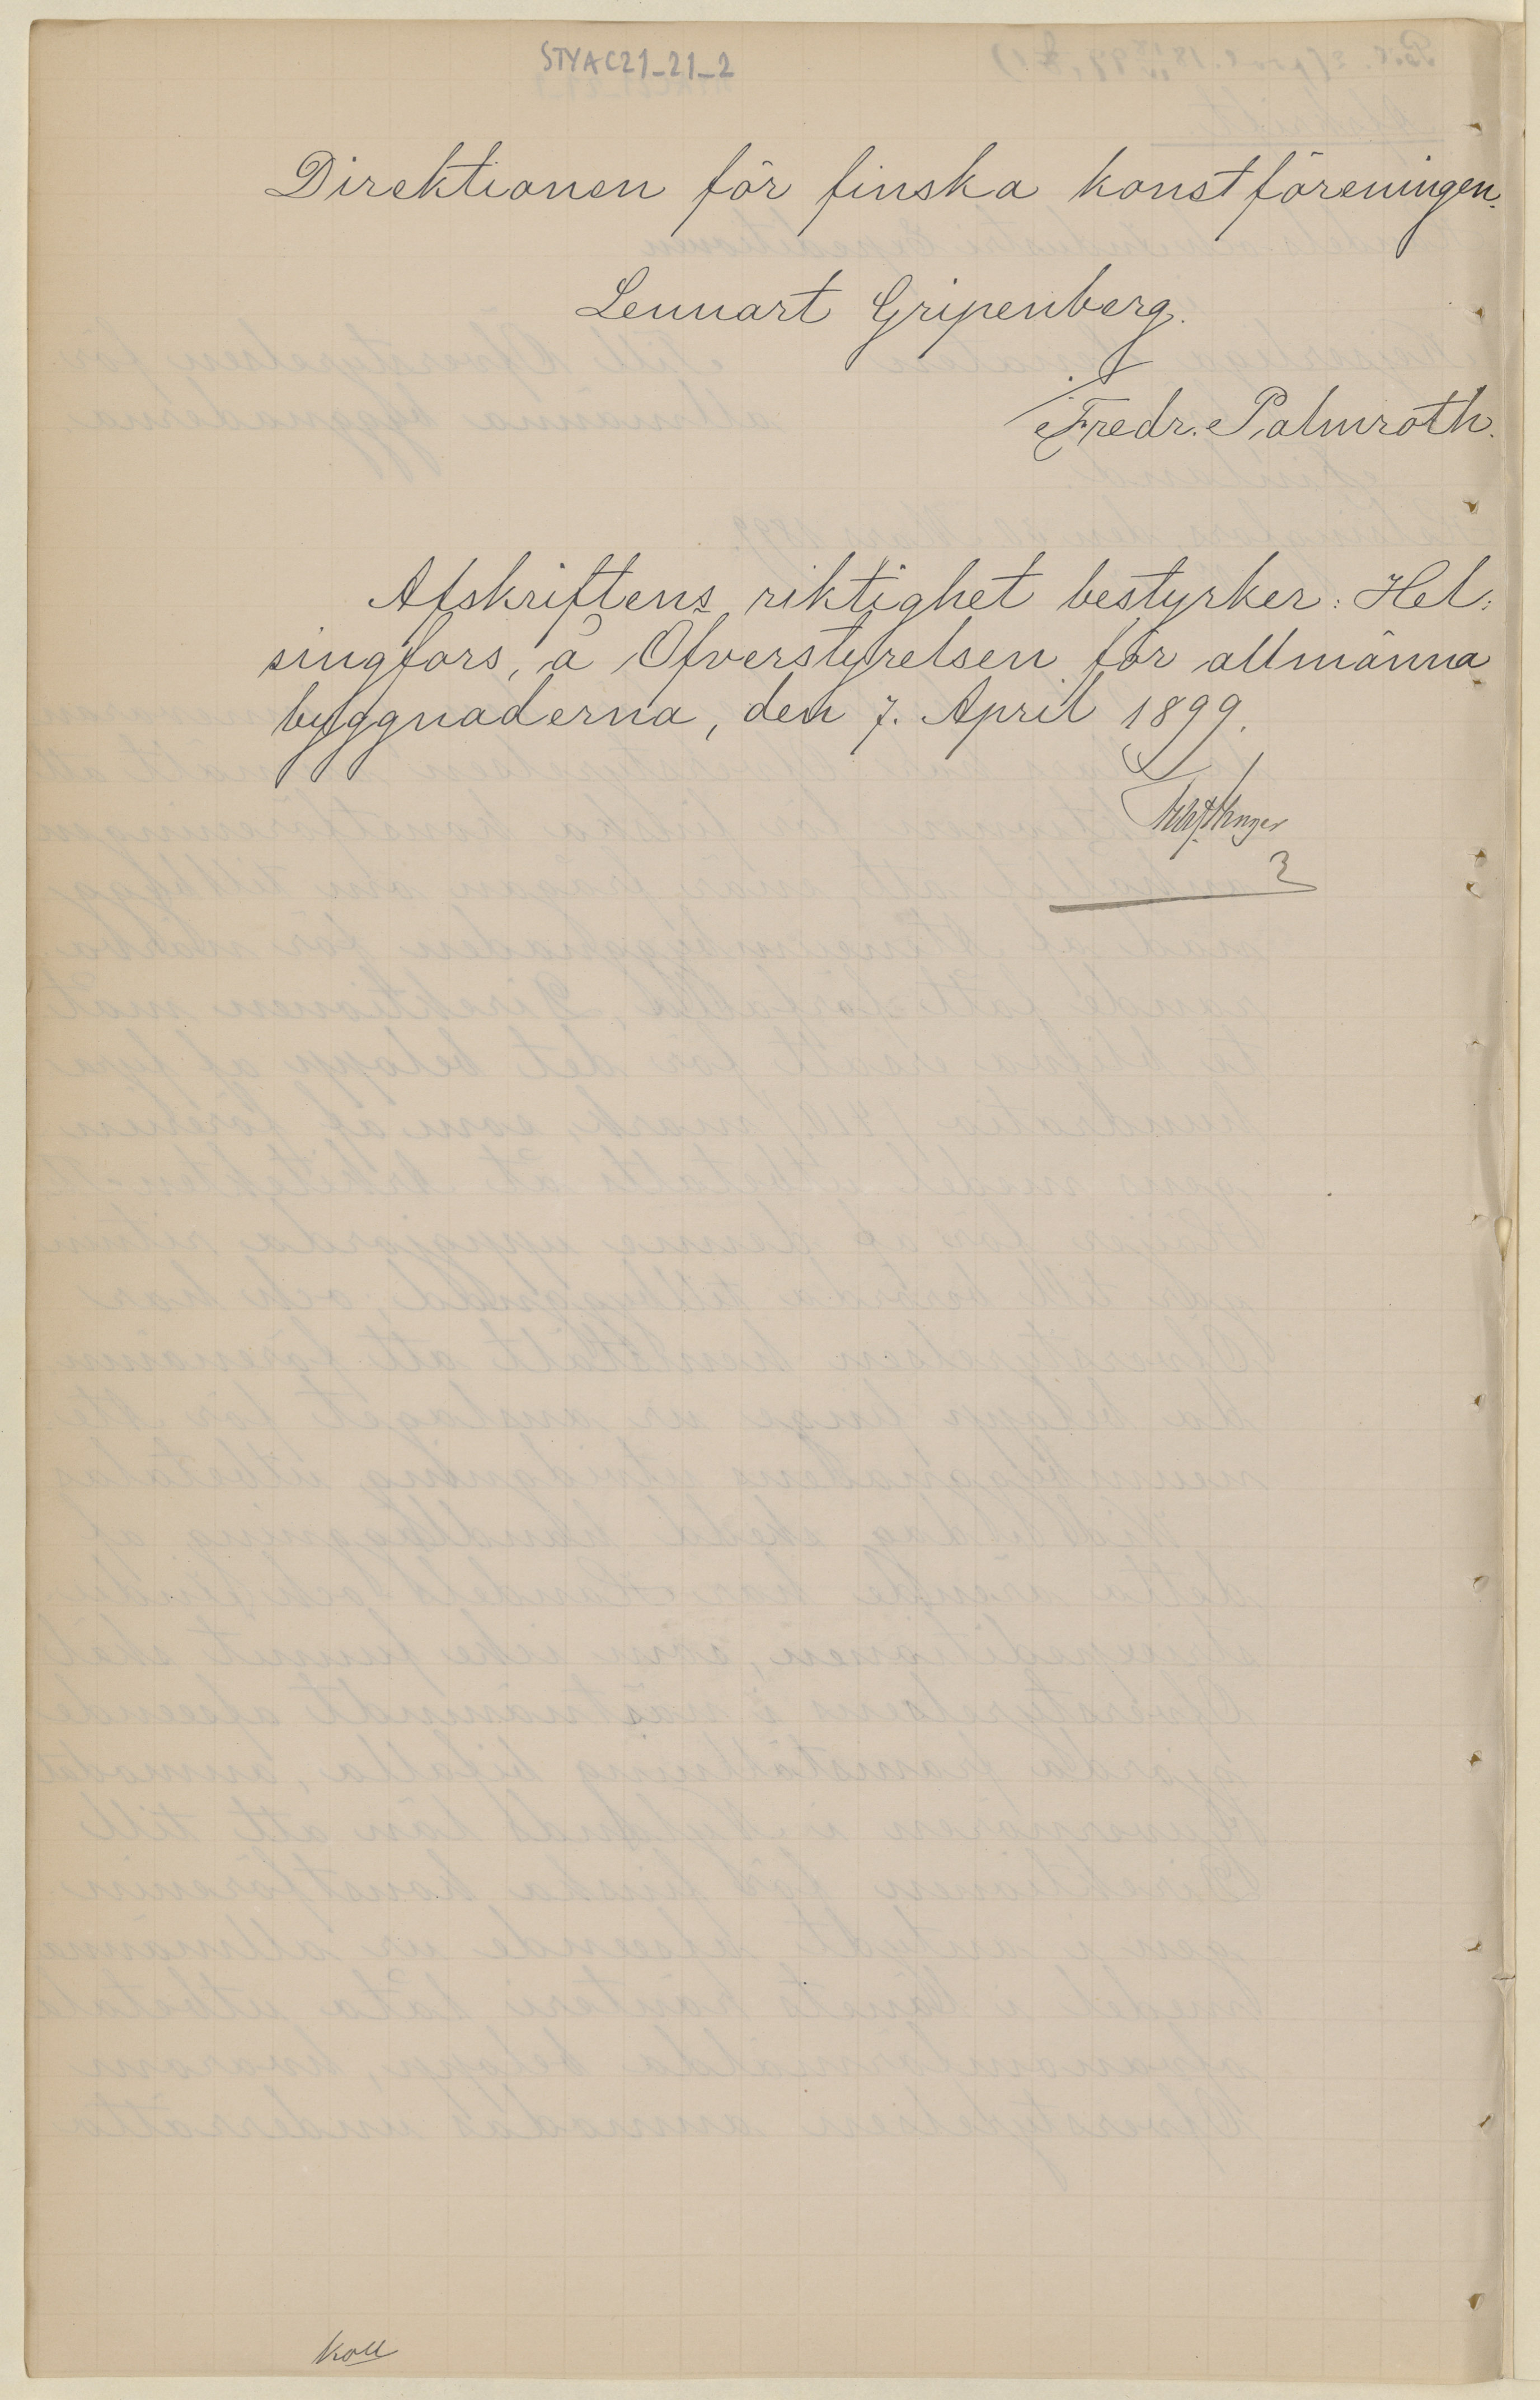 STYAC21_21_2
Direktionen för finska konstföreningen.
Lennart Gripenberg.
Fredr. Palmroth.
Afskriftens riktighet bestyrker: Hel-
singfors, å Öfverstyrelsen för allmänna
byggnaderna, den 7. April 1899.
Koll